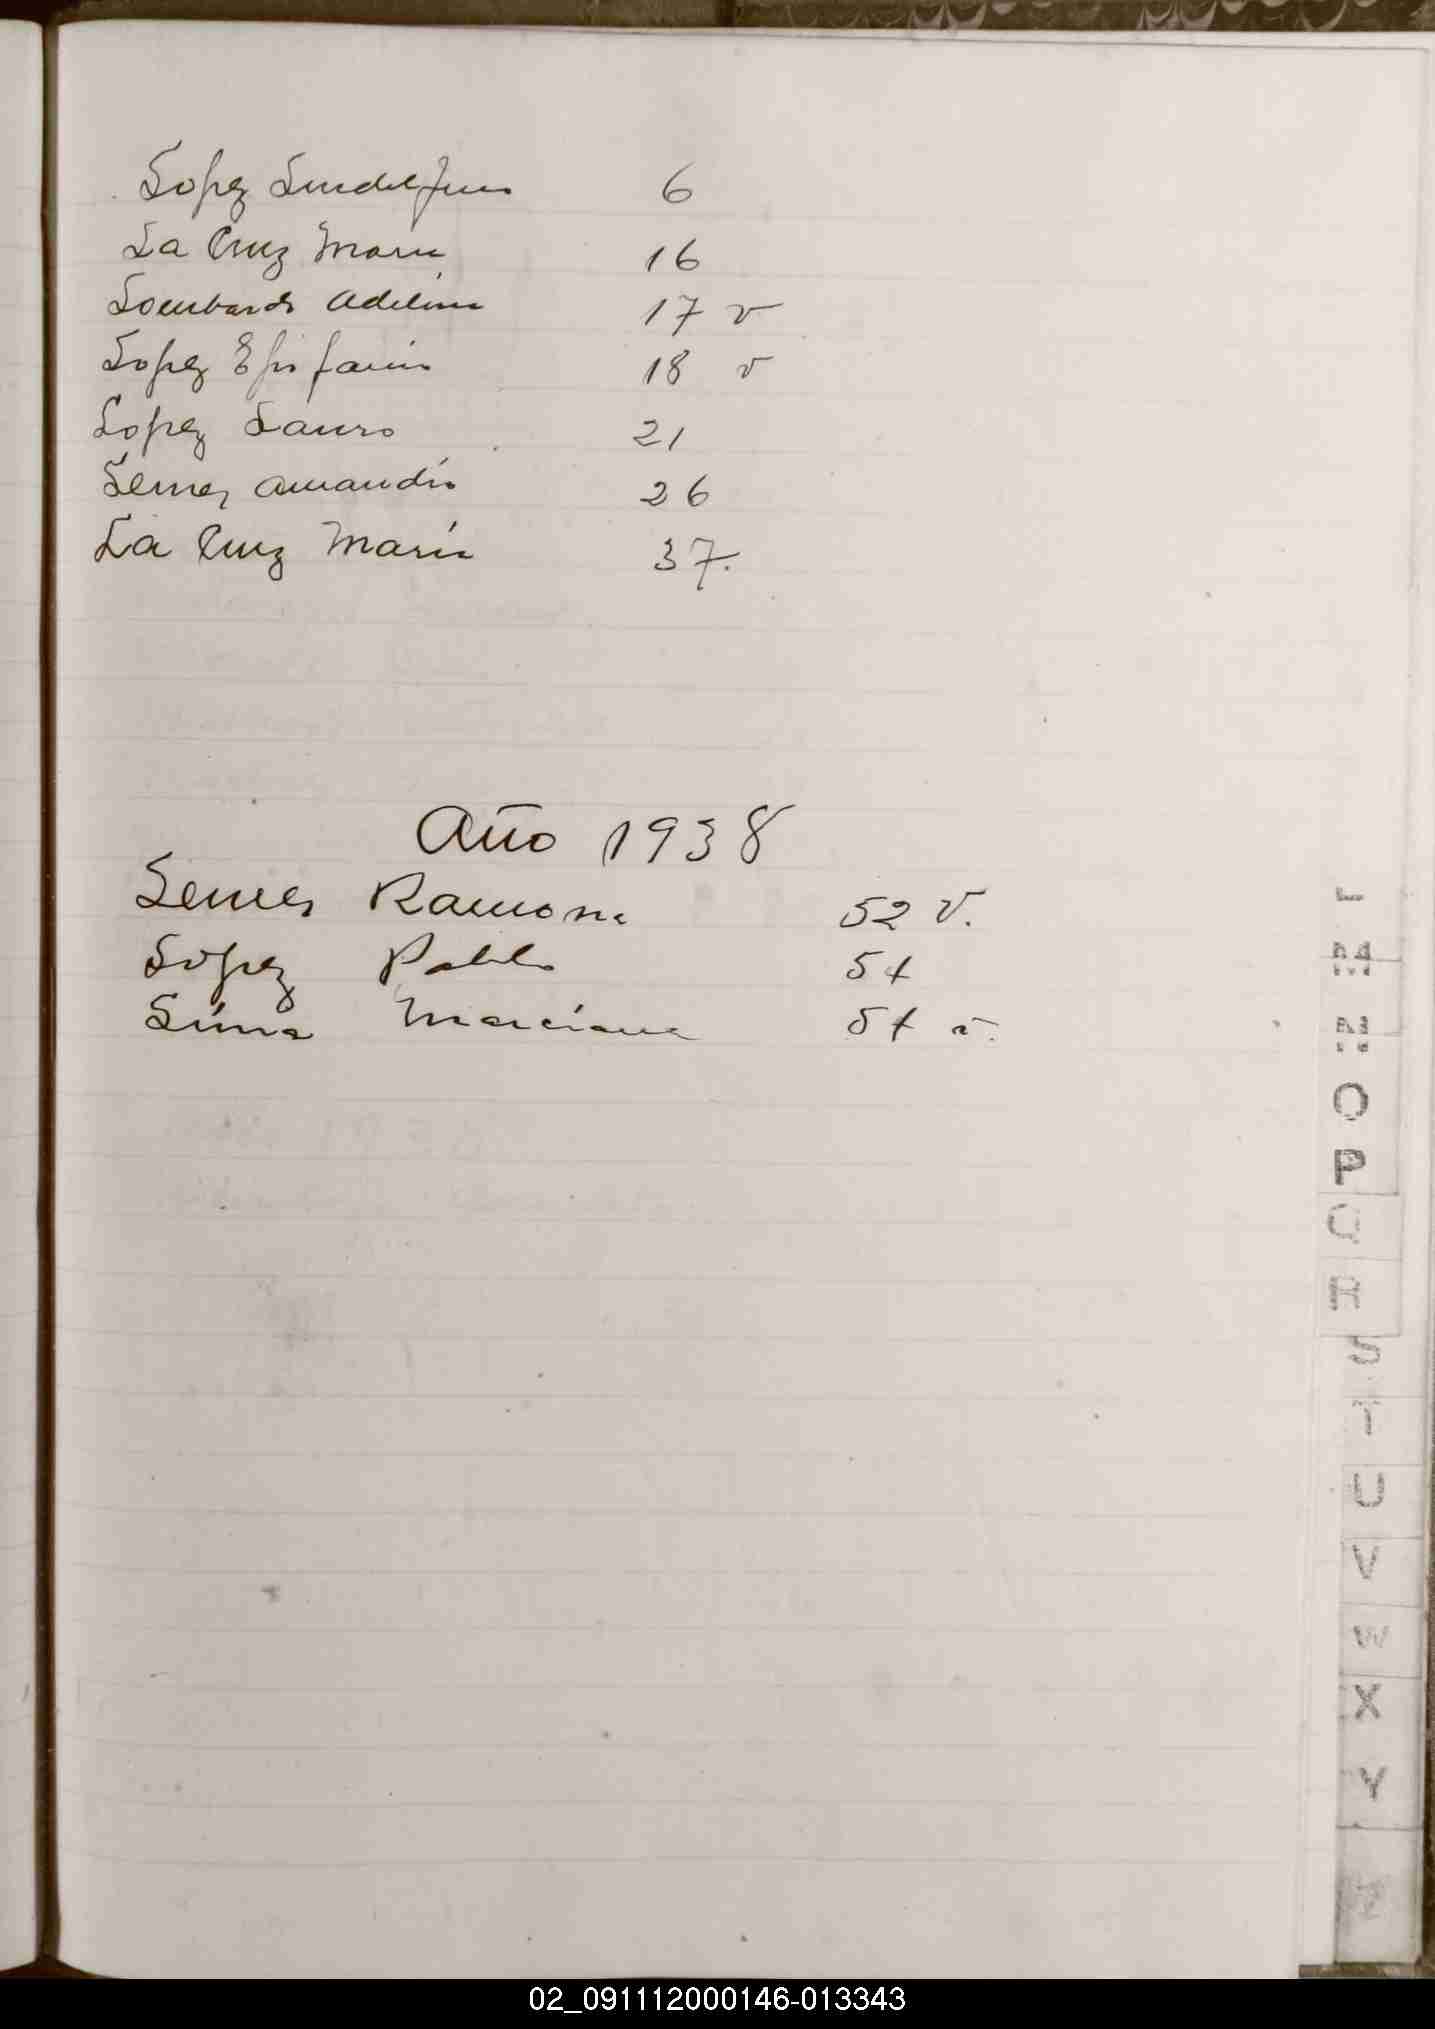 Lopez Lindelfino 6
La Cruz Maria 16
Lombardo Adelina 17 v
Lopez Epifanio 18 v
Lopez Lauro 21
Lemes Amandio 26
La Cruz Maria 37.
Año 1938
Lemes Ramona 52 V.
Lopez Pablo 54
Lima Marciana 54 v.
L
M
N
O
P
Q
R
S
T
U
V
W
X
Y
Z
02_091112000146-013343